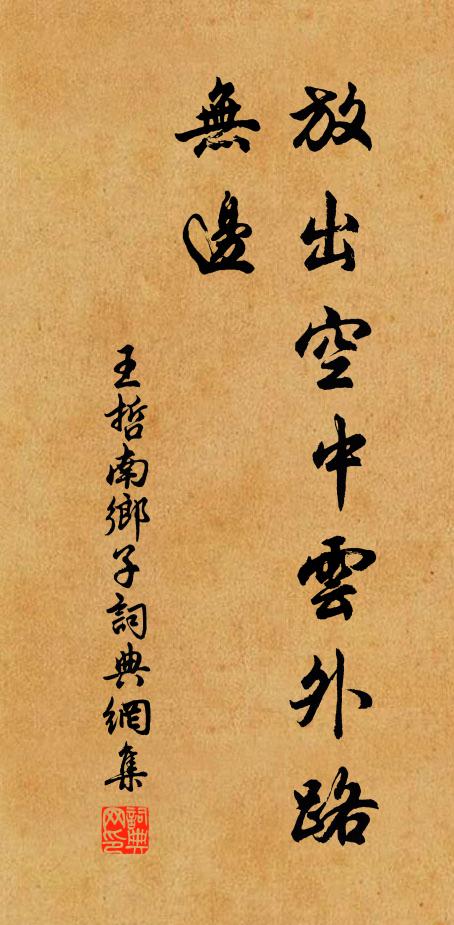 放出空中雲外路
無邊
王哲南鄉子詞典網集
詞典
网印